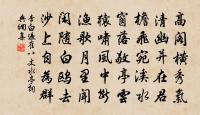 高閣橫秀氣
清幽并在君
檐飛宛溪水
窗落敬亭雲
猿嘯風中斷
漁歌月里聞
閑隨白鷗去
沙上自為群
李白過崔八丈水亭